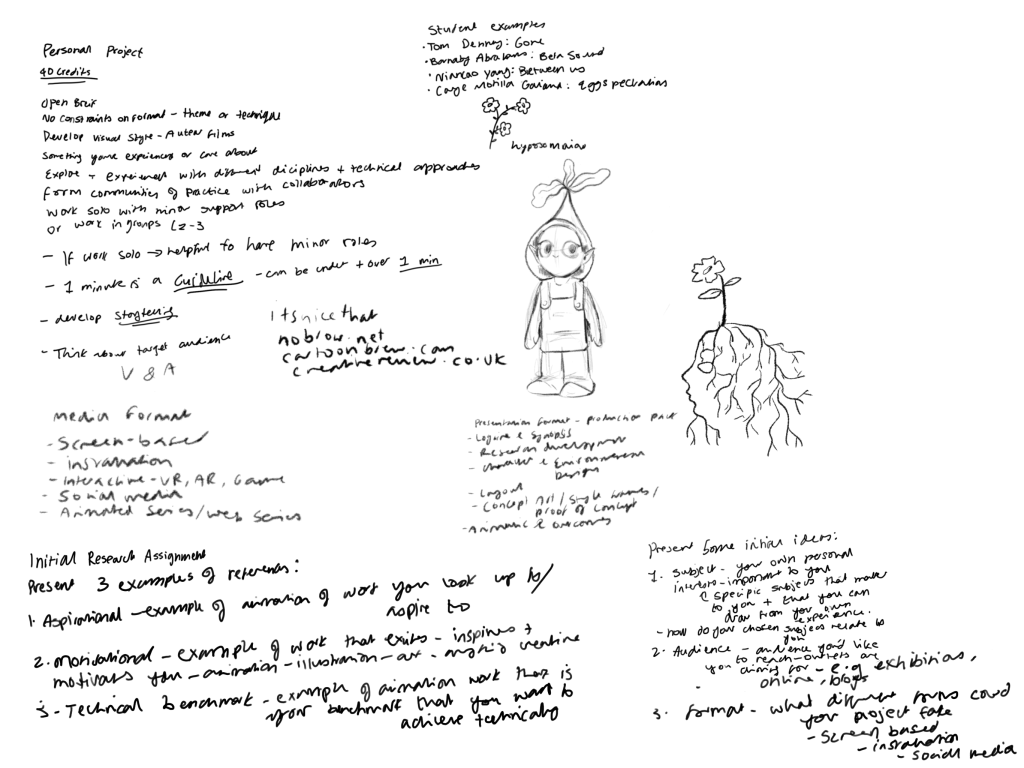 Personal Project
40 Credits
Open Breif
No constraints on format - theme or technique
Develop visual style - Auteur Films
Something youve experienced or care about
Explore + experiment with different diciplines + technical approaches
Form communities of practice with collaborators
Work solo with minor support roles
or work in groups (2-3
- If work solo → helpful to have minor roles
- 1 minute is a Guideline - can be under + over 1 min
- develop storytelling
- Think about target audience
V & A
Student examples
• Tom Denney: Gone
• Barnaby Abrahams: Bela Sound
• Niancao Yang: Between us
eggspectations
its nice that
nobrow.net
cartoonbrew.com
creativereview.co.uk
Media Format
- Screen-based
- installation
- interactive - VR, AR, Game
- Social media
- Animated Series/web series
Presentation format - production pack
- Logline & Synopsis
- Research development
- Character & Environment Design
- Layout
- Concept Art / Single frames / proof of concept
- Animatic & outcomes
Initial Research Assignment
Present 3 examples of references:
1. Aspirational - example of animation of work you look up to/
aspire to
2. motivational - example of work that exits - inspires +
motivates you - animation - illustration - art - anything creative
3. Technical benchmark - example of animation work that is
your benchmark that you want to
achieve technically
Present some initial ideas:
1. Subject - your own personal
interests - important to you
& specific subjects that matter
to you + that you can
draw from your own
experience.
- how do your chosen subjects relate to
you
2. Audience - audience you'd like
you to reach - outlets are
you aiming for - e.g exhibitions,
online, blogs
3. format - what different forms could
your project take
- Screen based
- installation
- social media